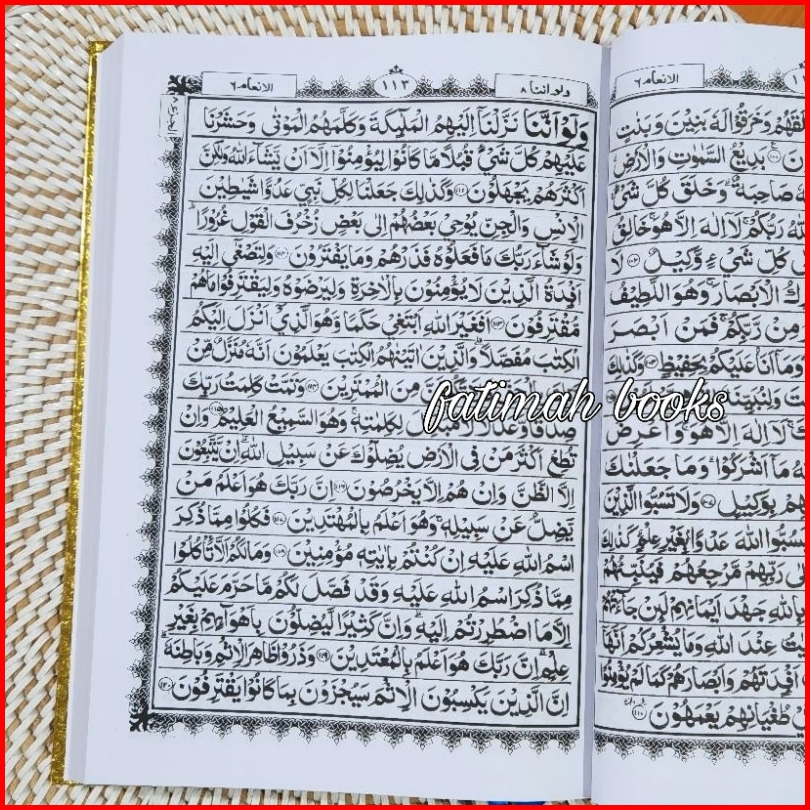 ولو اننا ٨
١١٣
الانعام ٦
وَلَوْ اَنَّنَا نَزَّلْنَآ اِلَيْهِمُ الْمَلٰٓئِكَةَ وَكَلَّمَهُمُ الْمَوْتٰى وَحَشَرْنَا
عَلَيْهِمْ كُلَّ شَيْءٍ قُبُلًا مَّا كَانُوْا لِيُؤْمِنُوْٓا اِلَّآ اَنْ يَّشَآءَ اللّٰهُ وَلٰكِنَّ
اَكْثَرَهُمْ يَجْهَلُوْنَ ١١١ وَكَذٰلِكَ جَعَلْنَا لِكُلِّ نَبِيٍّ عَدُوًّا شَيٰطِيْنَ
الْاِنْسِ وَالْجِنِّ يُوْحِيْ بَعْضُهُمْ اِلٰى بَعْضٍ زُخْرُفَ الْقَوْلِ غُرُوْرًا
وَلَوْ شَآءَ رَبُّكَ مَا فَعَلُوْهُ فَذَرْهُمْ وَمَا يَفْتَرُوْنَ ١١٢ وَلِتَصْغٰٓى اِلَيْهِ
اَفْـِٕدَةُ الَّذِيْنَ لَا يُؤْمِنُوْنَ بِالْاٰخِرَةِ وَلِيَرْضَوْهُ وَلِيَقْتَرِفُوْا مَا هُمْ
مُّقْتَرِفُوْنَ ١١٣ اَفَغَيْرَ اللّٰهِ اَبْتَغِيْ حَكَمًا وَّهُوَ الَّذِيْٓ اَنْزَلَ اِلَيْكُمُ
الْكِتٰبَ مُفَصَّلًا وَالَّذِيْنَ اٰتَيْنٰهُمُ الْكِتٰبَ يَعْلَمُوْنَ اَنَّهٗ مُنَزَّلٌ مِّنْ
مِنَ الْمُمْتَرِيْنَ ١١٤ وَتَمَّتْ كَلِمَتُ رَبِّكَ
صِدْقًا وَّعَدْلًا لَا مُبَدِّلَ لِكَلِمٰتِهٖ وَهُوَ السَّمِيْعُ الْعَلِيْمُ ١١٥ وَاِنْ
تُطِعْ اَكْثَرَ مَنْ فِى الْاَرْضِ يُضِلُّوْكَ عَنْ سَبِيْلِ اللّٰهِ اِنْ يَّتَّبِعُوْنَ
اِلَّا الظَّنَّ وَاِنْ هُمْ اِلَّا يَخْرُصُوْنَ ١١٦ اِنَّ رَبَّكَ هُوَ اَعْلَمُ مَنْ
يَّضِلُّ عَنْ سَبِيْلِهٖ وَهُوَ اَعْلَمُ بِالْمُهْتَدِيْنَ ١١٧ فَكُلُوْا مِمَّا ذُكِرَ
اسْمُ اللّٰهِ عَلَيْهِ اِنْ كُنْتُمْ بِاٰيٰتِهٖ مُؤْمِنِيْنَ ١١٨ وَمَا لَكُمْ اَلَّا تَأْكُلُوْا
مِمَّا ذُكِرَ اسْمُ اللّٰهِ عَلَيْهِ وَقَدْ فَصَّلَ لَكُمْ مَّا حَرَّمَ عَلَيْكُمْ
اِلَّا مَا اضْطُرِرْتُمْ اِلَيْهِ وَاِنَّ كَثِيْرًا لَّيُضِلُّوْنَ بِاَهْوَآئِهِمْ بِغَيْرِ
عِلْمٍ اِنَّ رَبَّكَ هُوَ اَعْلَمُ بِالْمُعْتَدِيْنَ ١١٩ وَذَرُوْا ظَاهِرَ الْاِثْمِ وَبَاطِنَهٗ
اِنَّ الَّذِيْنَ يَكْسِبُوْنَ الْاِثْمَ سَيُجْزَوْنَ بِمَا كَانُوْا يَقْتَرِفُوْنَ ١٢٠
fatimah books
الانعام ٦
وَخَرَقُوْا لَهٗ بَنِيْنَ وَبَنٰتٍ
بَدِيْعُ السَّمٰوٰتِ وَالْاَرْضِ
صَاحِبَةٌ وَخَلَقَ كُلَّ شَيْءٍ
رَبُّكُمْ لَآ اِلٰهَ اِلَّا هُوَ خَالِقُ
كُلِّ شَيْءٍ وَّكِيْلٌ ١٠٢ لَا
الْاَبْصَارَ وَهُوَ اللَّطِيْفُ
مِنْ رَّبِّكُمْ فَمَنْ اَبْصَرَ
وَمَآ اَنَا عَلَيْكُمْ بِحَفِيْظٍ ١٠٤ وَكَذٰلِكَ
لَآ اِلٰهَ اِلَّا هُوَ وَاَعْرِضْ
مَآ اَشْرَكُوْا وَمَا جَعَلْنٰكَ
بِوَكِيْلٍ ١٠٧ وَلَا تَسُبُّوا الَّذِيْنَ
فَيَسُبُّوا اللّٰهَ عَدْوًا بِغَيْرِ عِلْمٍ كَذٰلِكَ
رَبِّهِمْ مَّرْجِعُهُمْ فَيُنَبِّئُهُمْ
بِاللّٰهِ جَهْدَ اَيْمَانِهِمْ لَئِنْ جَآءَتْهُمْ
عِنْدَ اللّٰهِ وَمَا يُشْعِرُكُمْ اَنَّهَآ
اَفْـِٕدَتَهُمْ وَاَبْصَارَهُمْ كَمَا لَمْ يُؤْمِنُوْا
طُغْيَانِهِمْ يَعْمَهُوْنَ ١١٠